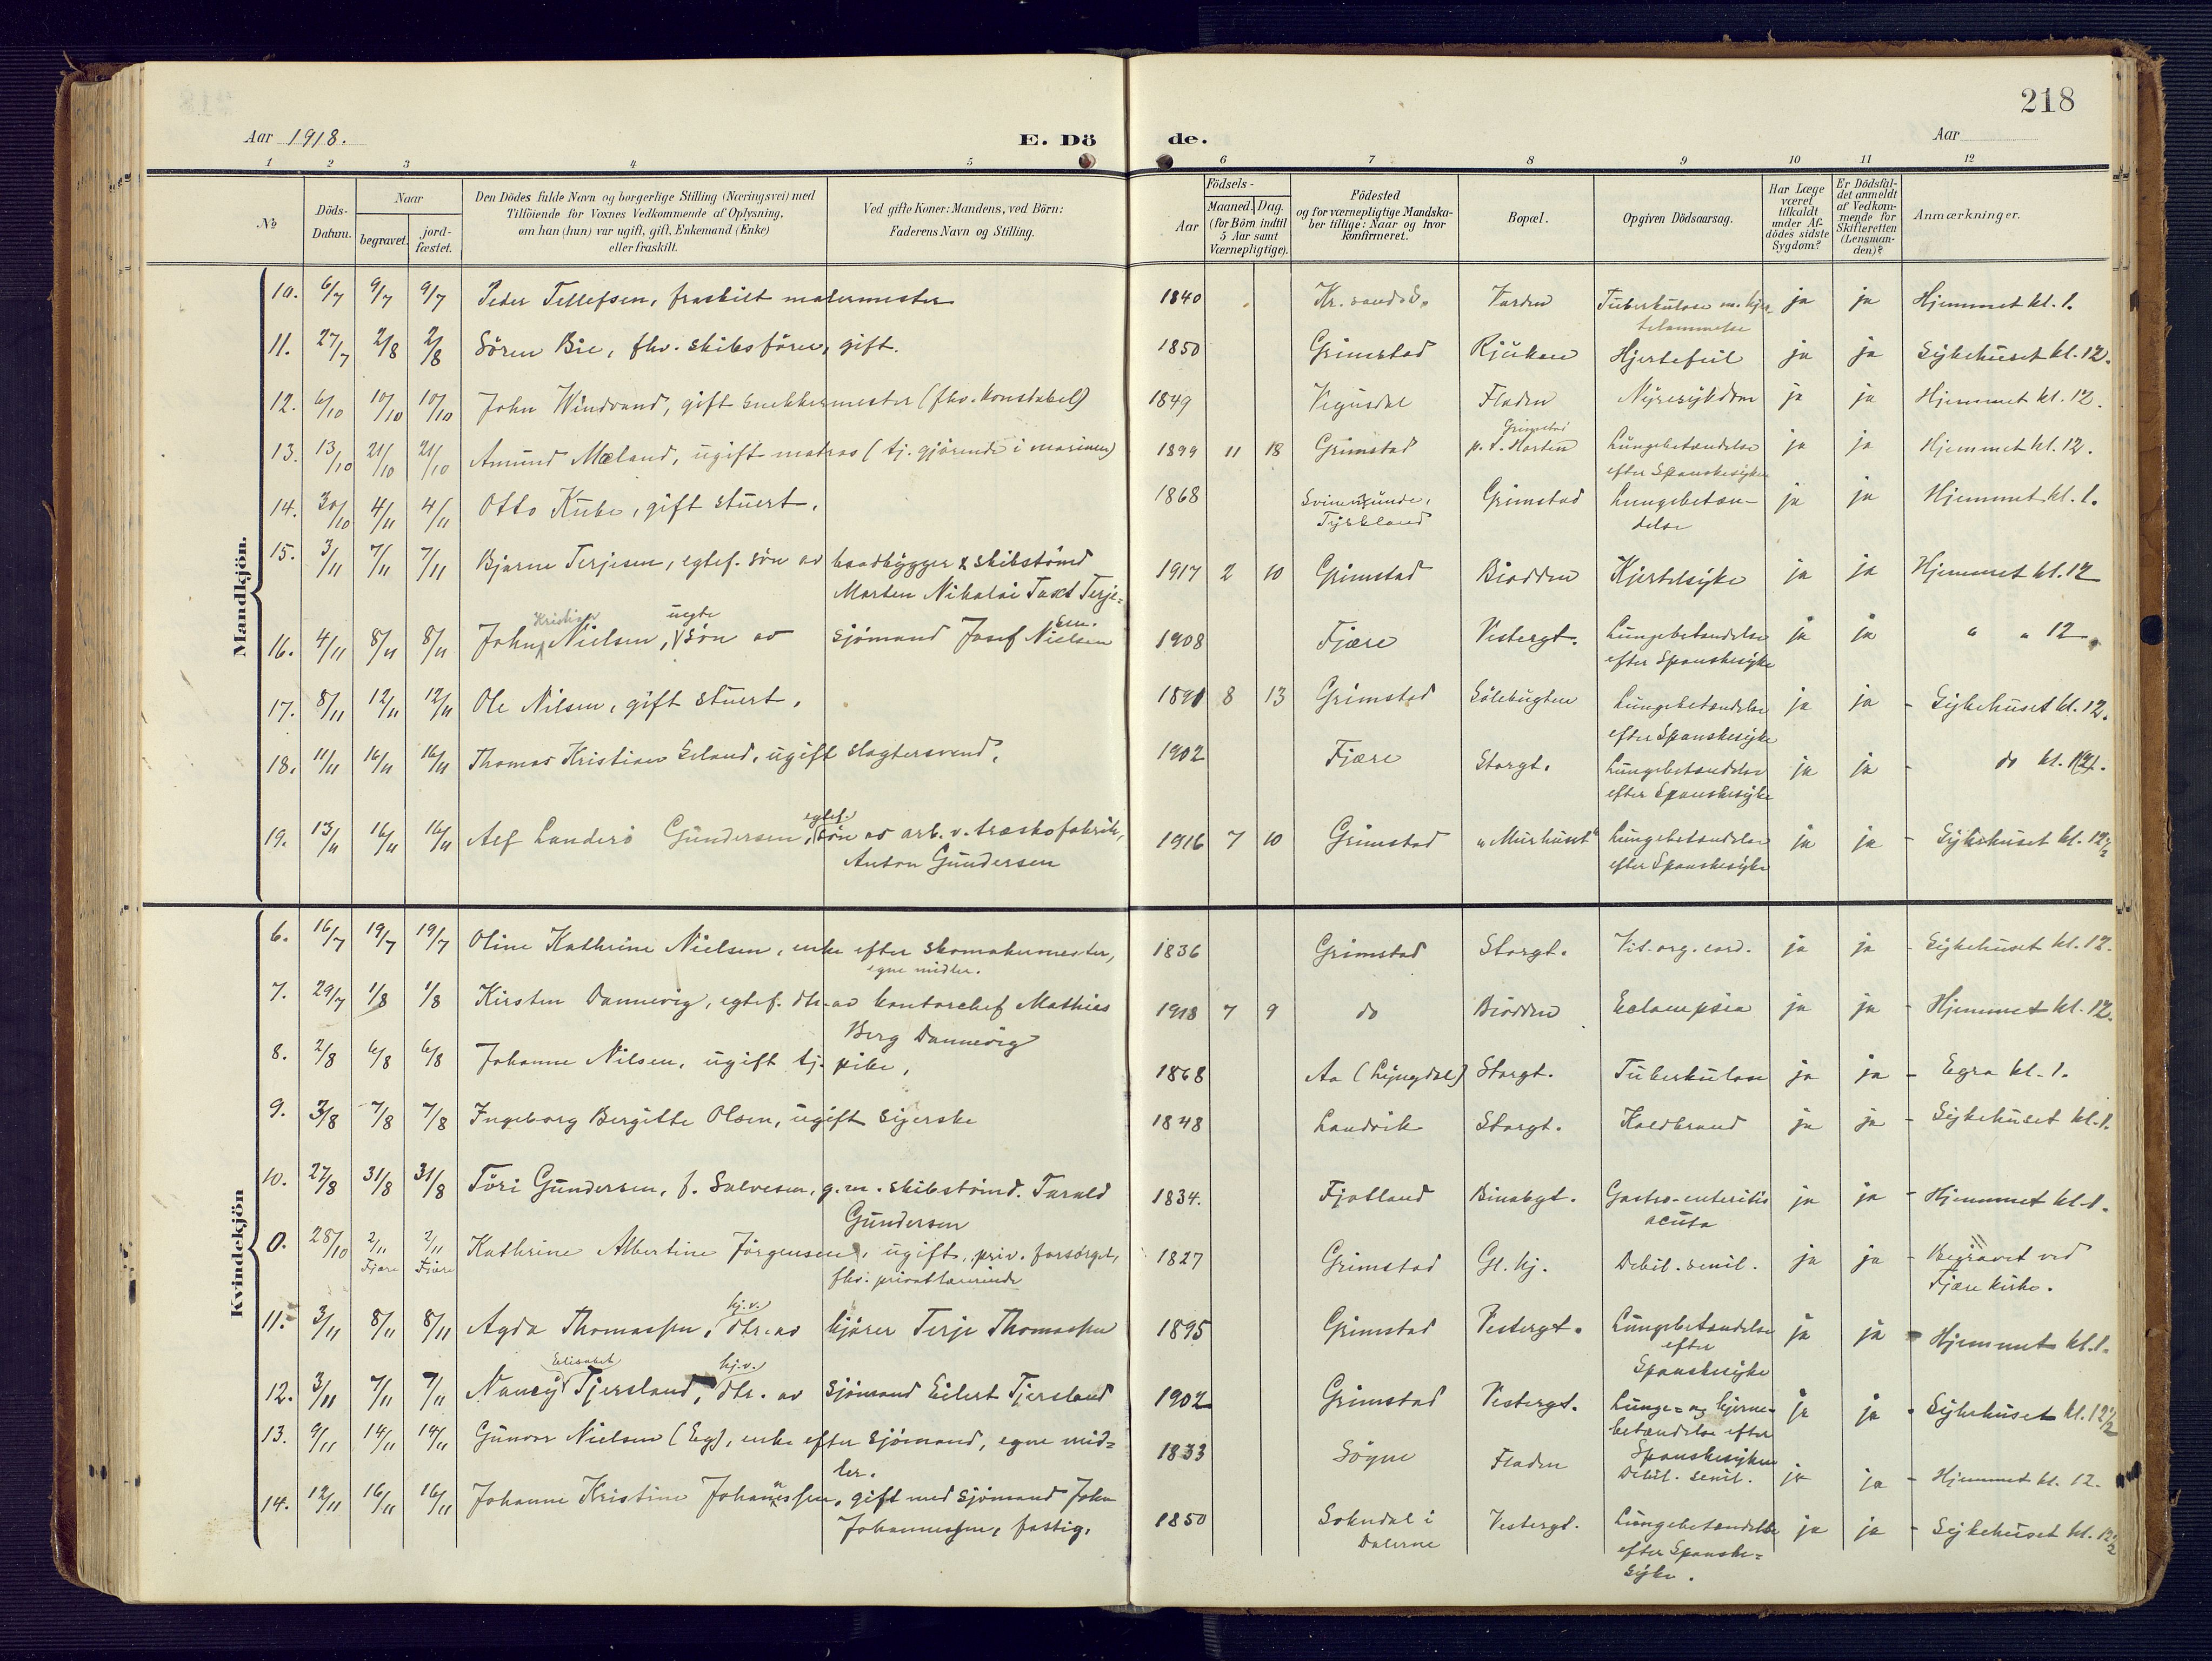 218
Aar 1918.
E. Dö de.
Aar
1 2 3 4 5 6 7 8 9 10 11 12
No
Döds-Datum.
Naar
begravet.
jord-fæstet.
Den Dödes fulde Navn og borgerlige Stilling (Næringsvei) med
Tilföiende for Voxnes Vedkommende af Oplysning,
om han (hun) var ugift, gift, Enkemand (Enke)
eller fraskilt.
Ved gifte Koner: Mandens, ved Börn:
Faderens Navn og Stilling.
Födsels-
Aar
Maaned. Dag.
(for Börn indtil
5 Aar samt
Værnepligtige).
Födested
og for værnepligtige Mandska-
ber tillige: Naar og hvor
konfirmeret.
Bopæl.
Opgiven Dödsaarsag.
Har Læge
været
tilkaldt
under Af-
dödes sidste
Sygdom?
Er Dödsfal-
det anmeldt
af Vedkom-
mende for
Skifteretten
(Lensman-
den)?
Anmærkninger.
Mandkjön.
10. 6/7 9/7 9/7 Peder Tellefsen, fraskilt malermester 1840 Kr.sand S. Varden Tuberkulose m. hjer-
telammelse ja ja Hjemmet kl. 1.
11. 27/7 2/8 2/8 Sören Bie, fhv. skibsförer, gift. 1850 Grimstad Rjukan Hjertefeil ja ja Sykehuset kl. 12.
12. 6/10 10/10 10/10 John Windvand, gift snekkermester (fhv. konstabel) 1849 Vegusdal Fladen Nyresykdom ja ja Hjemmet kl. 12.
13. 13/10 21/10 21/10 Amund Mæland, ugift matros (tj. gjörende i marinen) 1899 11 18 Grimstad Grimstad
p.t. Horten Lungebetændelse
efter Spanskesyke ja ja Hjemmet kl. 12.
14. 30/10 4/11 4/11 Otto Kube, gift stuert. 1868 Svinemünde,
Tyskland Grimstad Lungebetæn-
delse ja ja Hjemmet kl. 1.
15. 3/11 7/11 7/11 Bjarne Terjesen, egtef. sön av baadbygger & skibstömd
Morten Nikolai Terje-
sen. 1917 2 10 Grimstad Biodden Kjertelsyke ja ja Hjemmet kl. 12
16. 4/11 8/11 8/11 John Kristian Nielsen, uegte sön av sjömand Josef Nielsen 1908 Fjære Vestergt. Lungebetændelse
efter Spanskesyke ja ja " " 12.
17. 8/11 12/11 12/11 Ole Nilsen, gift stuert. 1891 8 13 Grimstad Sölebugten Lungebetændelse
efter Spanskesyke ja ja - Sykehuset kl. 12.
18. 11/11 16/11 16/11 Thomas Kristian Seland, ugift slagtersvend. 1902 Fjære Storgt. Lungebetændelse
efter Spanskesyke ja ja - do kl.
19. 13/11 16/11 16/11 Alf Landerö Gundersen, egtef. sön av arb. v. træskofabrik,
Anton Gundersen 1916 7 10 Grimstad "Murhuset" Lungebetændelse
efter Spanskesyke ja ja - Sykehuset kl. 12 1/2
Kvindekjön
6. 16/7 19/7 19/7 Oline Kathrine Nielsen, enke efter skomakermester,
egne midler. 1836 Grimstad Storgt. Vit. org. cord. ja ja - Sykehuset kl. 12.
7. 29/7 1/8 1/8 Kirsten Dannevig, egtef. dtr. av kontorchef Mathias
Berg Dannevig 1918 7 9 do Biodden Eclampsia ja ja - Hjemmet kl. 12.
8. 2/8 6/8 6/8 Johanne Nilsen, ugift tj. pike, 1868 Aa (Lyngdal) Storgt. Tuberkulose ja ja - Egra kl. 1.
9. 3/8 7/8 7/8 Ingeborg Bergitte Olsen, ugift syerske 1848 Landvik Storgt. Koldbrand ja ja - Sykehuset kl. 1.
10. 27/8 31/8 31/8 Töri Gundersen, f. Salvesen, g. m. skibstömd. Tarald
Gundersen 1834. Fjotland Binabgt. Gastro-enteritis
acuta ja ja - Hjemmet kl. 1.
0. 28/10 2/11 Fjære 2/11 Fjære Kathrine Albertine Jörgensen, ugift, priv. forsörget,
fhv. privatlærerinde 1827 Grimstad Gl. hj. Debil. senil. ja ja - Begravet ved
Fjære kirke.
11. 3/11 8/11 8/11 Agda Thomassen, hj.v. dtr. av kjörer Terje Thomassen 1895 Grimstad Vestergt. Lungebetændelse
efter
Spanskesyke ja ja - Hjemmet kl. 1.
12. 3/11 7/11 7/11 Nancy Elisabet Tjersland, hj.v. dtr. av sjömand Eilert Tjersland 1902 Grimstad Vestergt. Lunge- og hjerne-
betændelse efter
Spanskesyken ja ja - Sykehuset kl. 12 1/2
13. 9/11 14/11 14/11 Gunvor Nielsen (Eg), enke efter sjömand, egne mid-
ler. 1833 Sögne Fladen Debil. senil. ja ja - Hjemmet kl. 12.
14. 12/11 16/11 16/11 Johanne Kristine Johannessen, gift med sjömand John
Johannessen, fattig. 1850 Sokndal i
Dalerne Vestergt. Lungebetændelse
efter Spanske-
syke. ja ja - Sykehuset kl. 12 1/2